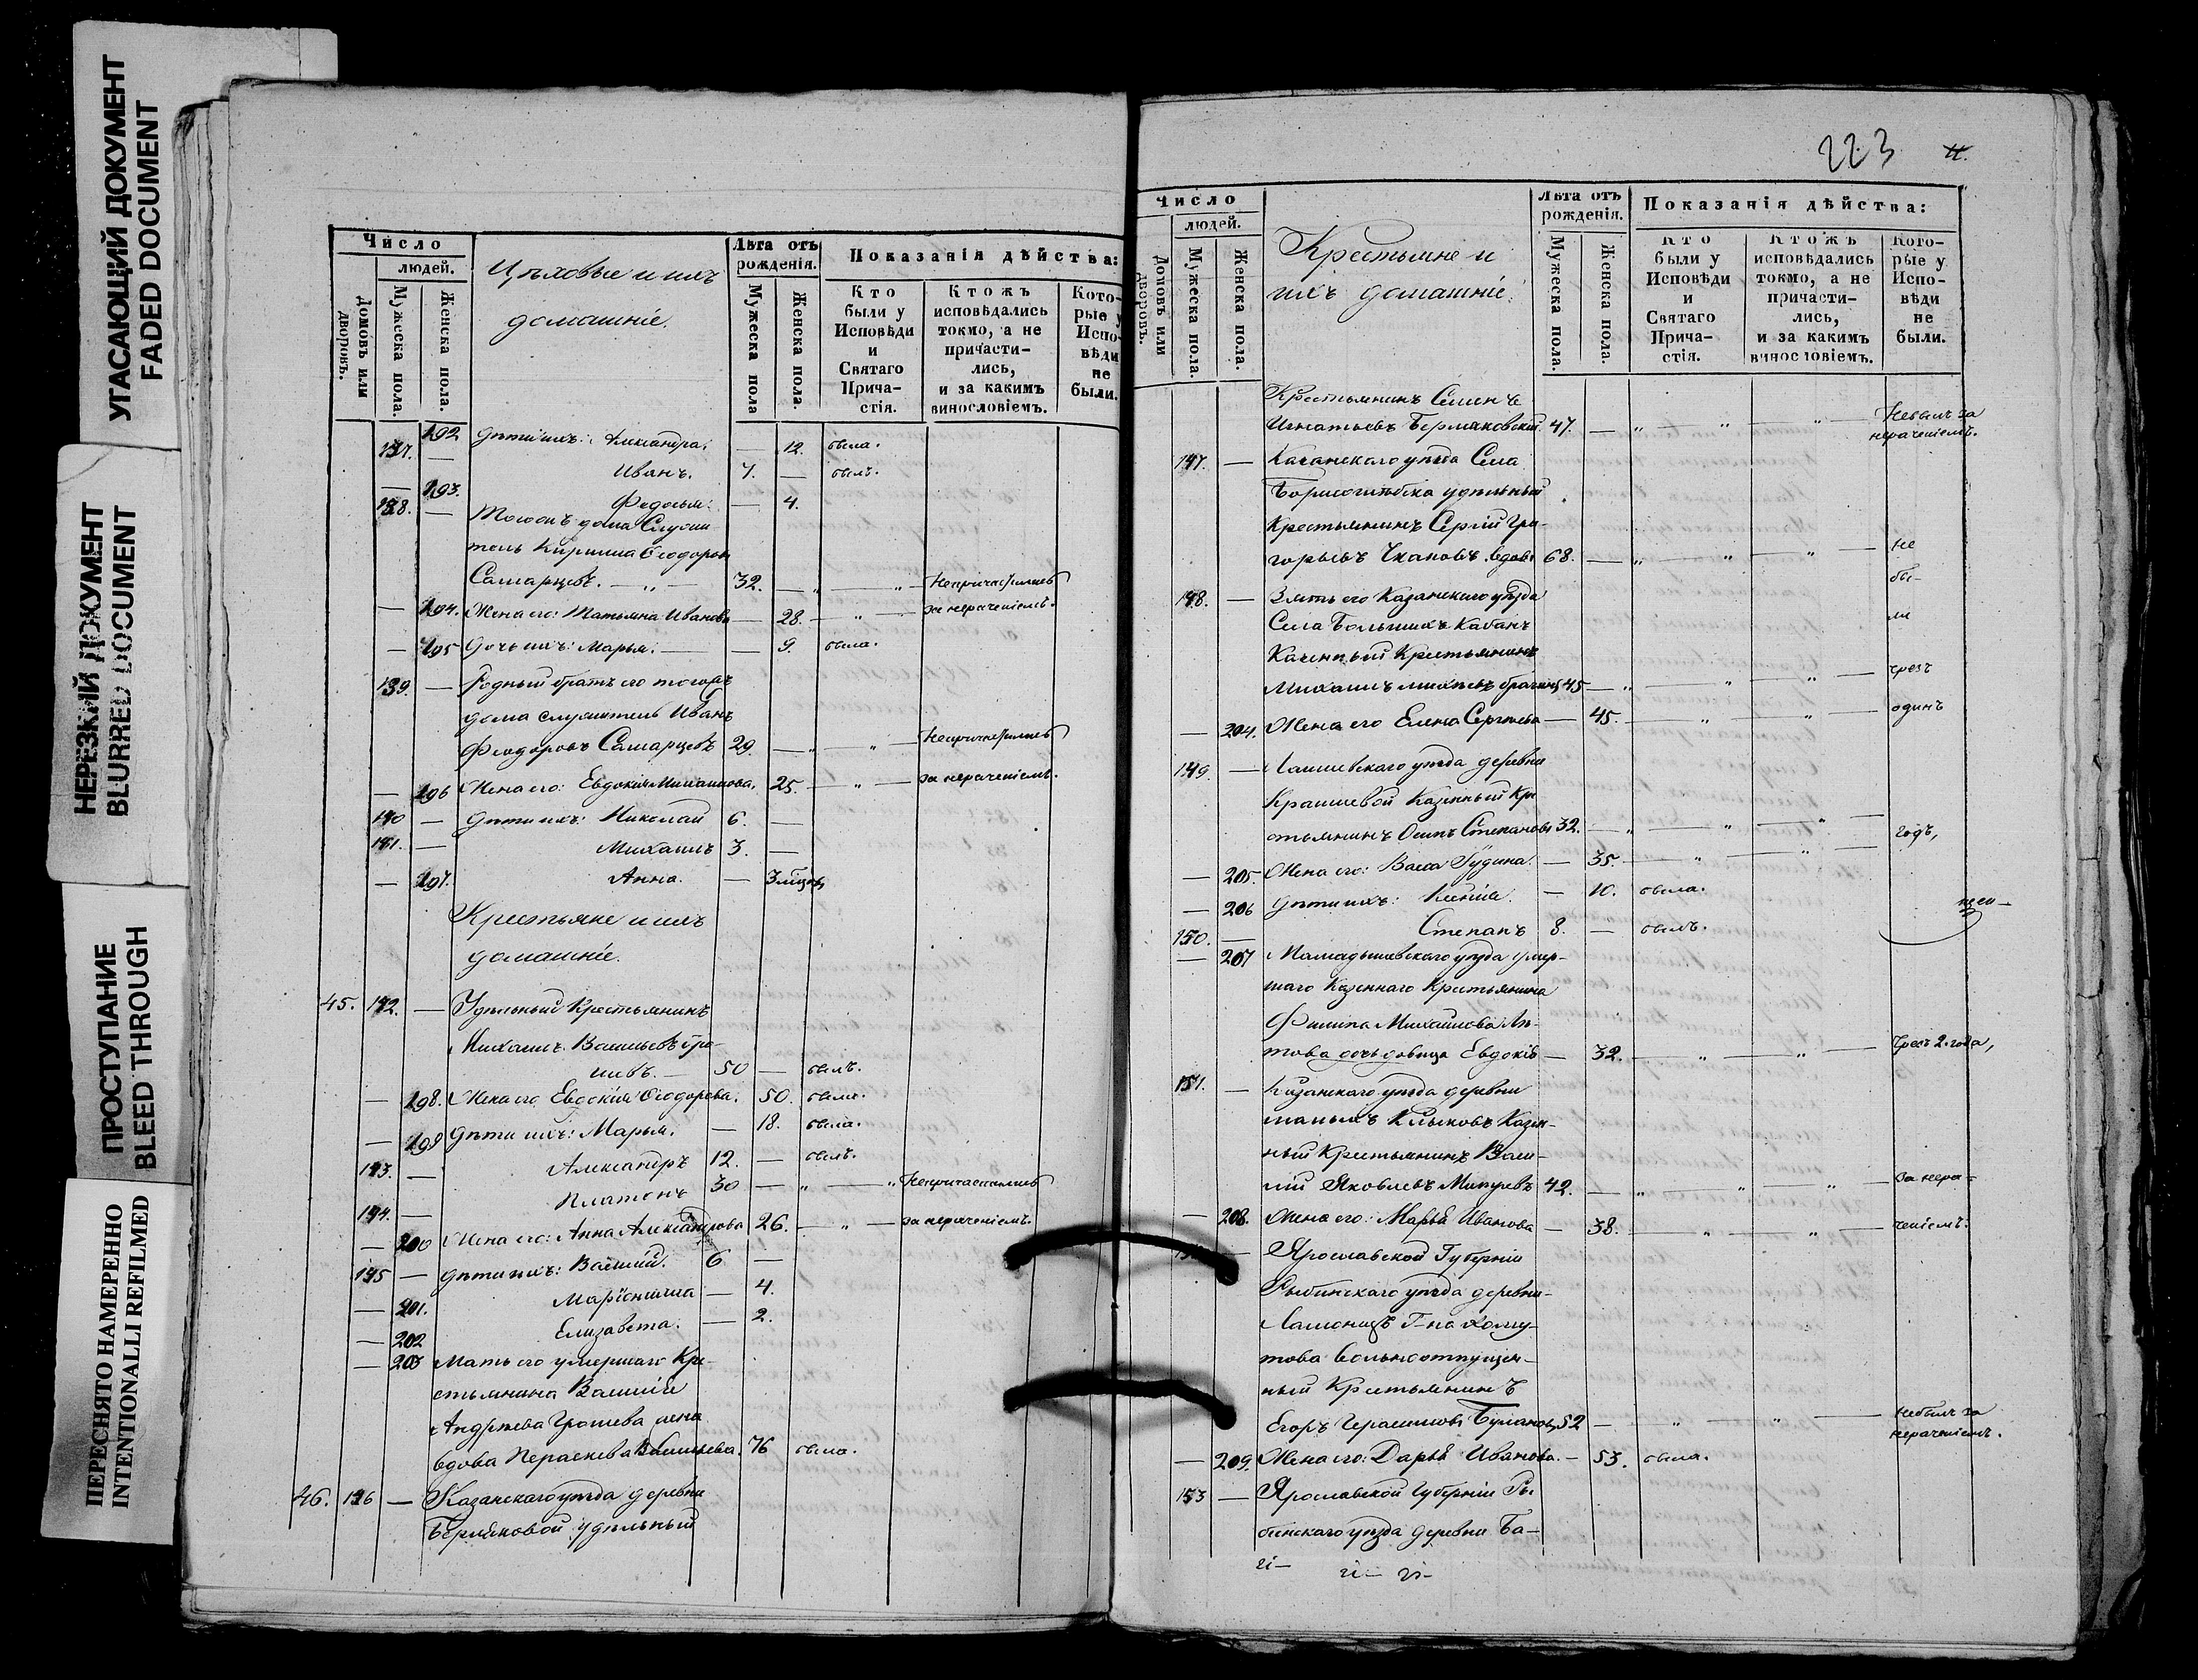 УГАСАЮЩИЙ ДОКУМЕНТ
FADED DOCUMENT
НЕРЕЗКИЙ ДОКУМЕНТ
BLURRED DOCUMENT
ПРОСТУПАНИЕ
BLEED THROUGH
ПЕРЕСНЯТО НАМЕРЕННО
INTENTIONALI REFILMED
Число
людей.
Домовъ или дворовъ.
Мужеска пола.
Женска пола.
Цѣховые и ихъ
домашніе.
Лѣта отъ
рожденія.
Мужеска пола
Женска пола.
Показанія дѣйства:
Кто
были у
Исповѣди
и
Святаго
Прича-
стія.
Ктожъ
исповѣдались
токмо, а не
причасти-
лись,
и за какимъ
винословіемъ.
Кото-
рые у
Испо-
вѣди
не
были.
192 Дѣти ихъ: Александра. — 12. была.
137. — Иванъ. 7. — былъ.
— 193. Федосья. — 4.
138. — Тогожъ дома Служи-
тель Кирилла Ѳеодоровъ
Самарцевъ. — „ — 32. — „ — „ — Непричастились
— 194. Жена его: Татьяна Иванова — 28. — „ — за нераченіемъ.
— 195 Дочь ихъ: Марья. — — 9. была.
139. — Родный братъ его тогожъ
дома служитель Иванъ
Феодоровъ Самарцевъ 29. — „ — „ — Непричастились
— 196 Жена его: Евдокія Михайлова. 25. — „ — за нераченіемъ.
140 — Дѣти ихъ: Николай 6. —
141. — Михаилъ 3. —
— 197. Анна. — 3 мѣсяц.
Крестьяне и ихъ
домашніе.
45. 142. — Удѣльный Крестьянинъ
Михаилъ Васильевъ Гро-
шевъ. — 50 — былъ.
— 198. Жена его Евдокія Ѳеодорова. 50. была.
— 199 Дѣти ихъ: Марья. — 18. была.
143. — Александръ 12. — былъ.
144. — Платонъ 30 — „ — „ Непричастились
— 200 Жена его: Анна Александрова 26. — „ — за нераченіемъ.
145 — Дѣти ихъ: Василій. 6 —
— 201. — 4.
— 202 Елизавета. — 2.
— 203 Мать его умершаго Кре-
стьянина Василія
Андреева Грошева жена
вдова Параскева Васильева. 76 была.
46. 146 — Казанскаго уѣзда деревни
Беряковой удѣльный
223
Число
людей.
Домовъ или дворовъ.
Мужеска пола.
Женска пола.
Крестьяне и
ихъ домашніе.
Лѣта отъ
рожденія.
Мужеска пола.
Женска пола.
Показанія дѣйства:
Кто
были у
Исповѣди
и
Святаго
Прича-
стія.
Ктожъ
исповѣдались
токмо, а не
причасти-
лись,
и за какимъ
винословіемъ.
Кото-
рые у
Испо-
вѣди
не
были.
Крестьянинъ Семенъ
Игнатьевъ 47. — „ — „ — „ — Небылъ за
нераченіемъ.
147. — Казанскаго уѣзда Села
Борисоглѣбска удѣльный
Крестьянинъ Сергій Гри-
горьевъ Чкановъ вдовъ 68. — „ — „ — „ — не
бы-
148. — Зять его Казанскаго уѣзда
Села Большихъ Кабанъ ли
Казенный Крестьянинъ
Михаилъ 45 — „ — „ — „ — чрезъ
— 204. Жена его Елена Сергѣева — 45. — „ — „ — одинъ
149. — Лаишевскаго уѣзда деревни
Казенный Кре-
стьянинъ Осипъ Степановъ 32. — „ — „ — „ — годъ,
— 205. Жена его: Васса — 35. — „ — „ —
— 206 Дѣти ихъ: Ксенія. — 10. была.
150. — Степанъ 8. — былъ.
— 207 Мамадышевскаго уѣзда умер-
шаго Казеннаго Крестьянина
Филипа Михайлова Ла-
това дочь дѣвица Евдокія — 32. — „ — „ — Чрезъ 2. года,
151. — Казанскаго уѣзда деревни
малыхъ Клыковъ Казен-
ный Крестьянинъ Васи-
лій Яковлевъ 42. — „ — „ — „ — за нера-
— 208. Жена его: Марья Иванова — 38. — „ — „ — ченіемъ.
— Ярославской Губерніи
Рыбинскаго уѣзда деревни-
Г-на Хому-
това вольноотпущен-
ный Крестьянинъ
Егоръ Герасимовъ 52 — „ — „ — Небылъ за
нераченіемъ.
— 209. Жена его: Дарья Иванова. — 53. была.
153 — Ярославской Губерніи Ры-
бинскаго уѣзда деревни Ба-